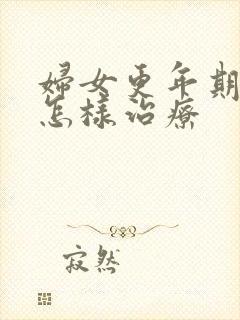 婦女更年期
怎樣治療
寂然